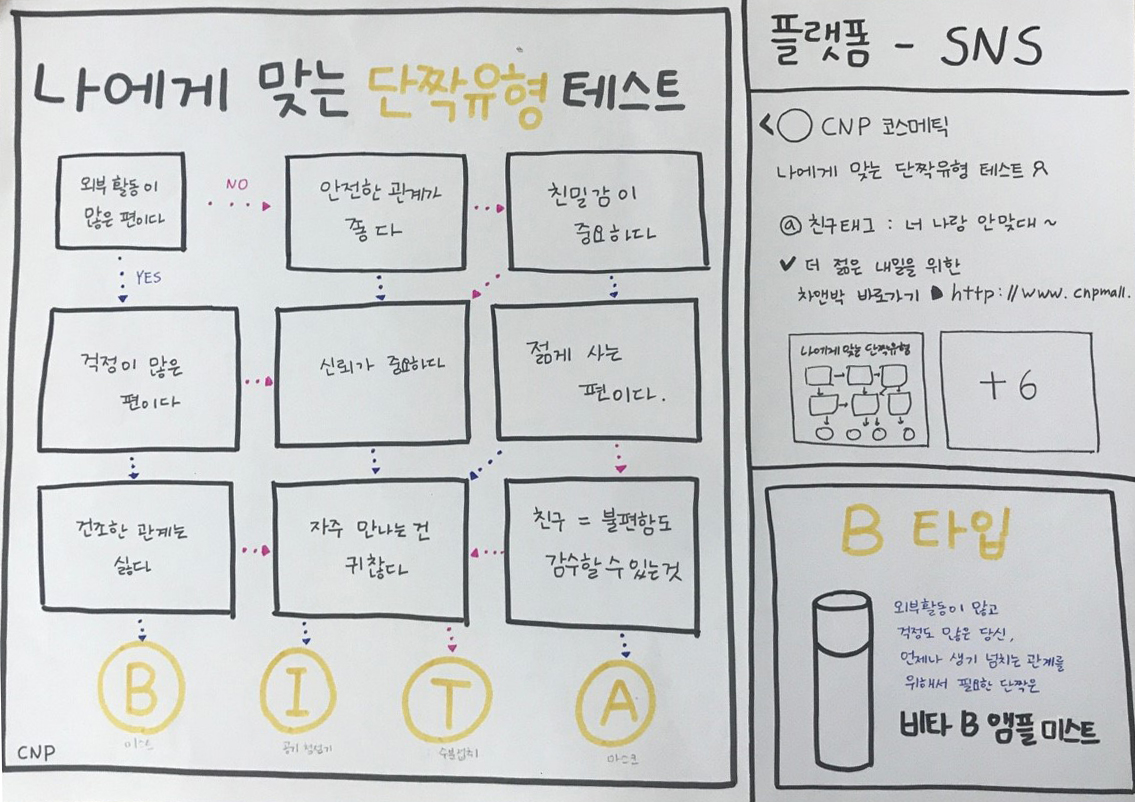 나에게 맞는 단짝유형 테스트
외부 활동이
많은 편이다
NO
YES
안전한 관계가
좋다
친밀감이
중요하다
걱정이 많은
편이다
신뢰가 중요하다
젊게 사는
편이다.
건조한 관계는
싫다
자주 만나는 건
귀찮다
친구 = 불편함도
감수할 수 있는것
B
I
T
A
미스트
공기청정기
마스크
CNP
플랫폼 - SNS
< CNP 코스메틱
나에게 맞는 단짝유형 테스트
@ 친구태그 : 너 나랑 안맞대 ~
✔ 더 젊은 내일을 위한
차앤박 바로가기 http://www.cnpmall.
나에게 맞는 단짝유형
+6
B 타입
외부활동이 많고
걱정도 많은 당신,
언제나 생기 넘치는 관계를
위해서 필요한 단짝은
비타 B 앰플 미스트